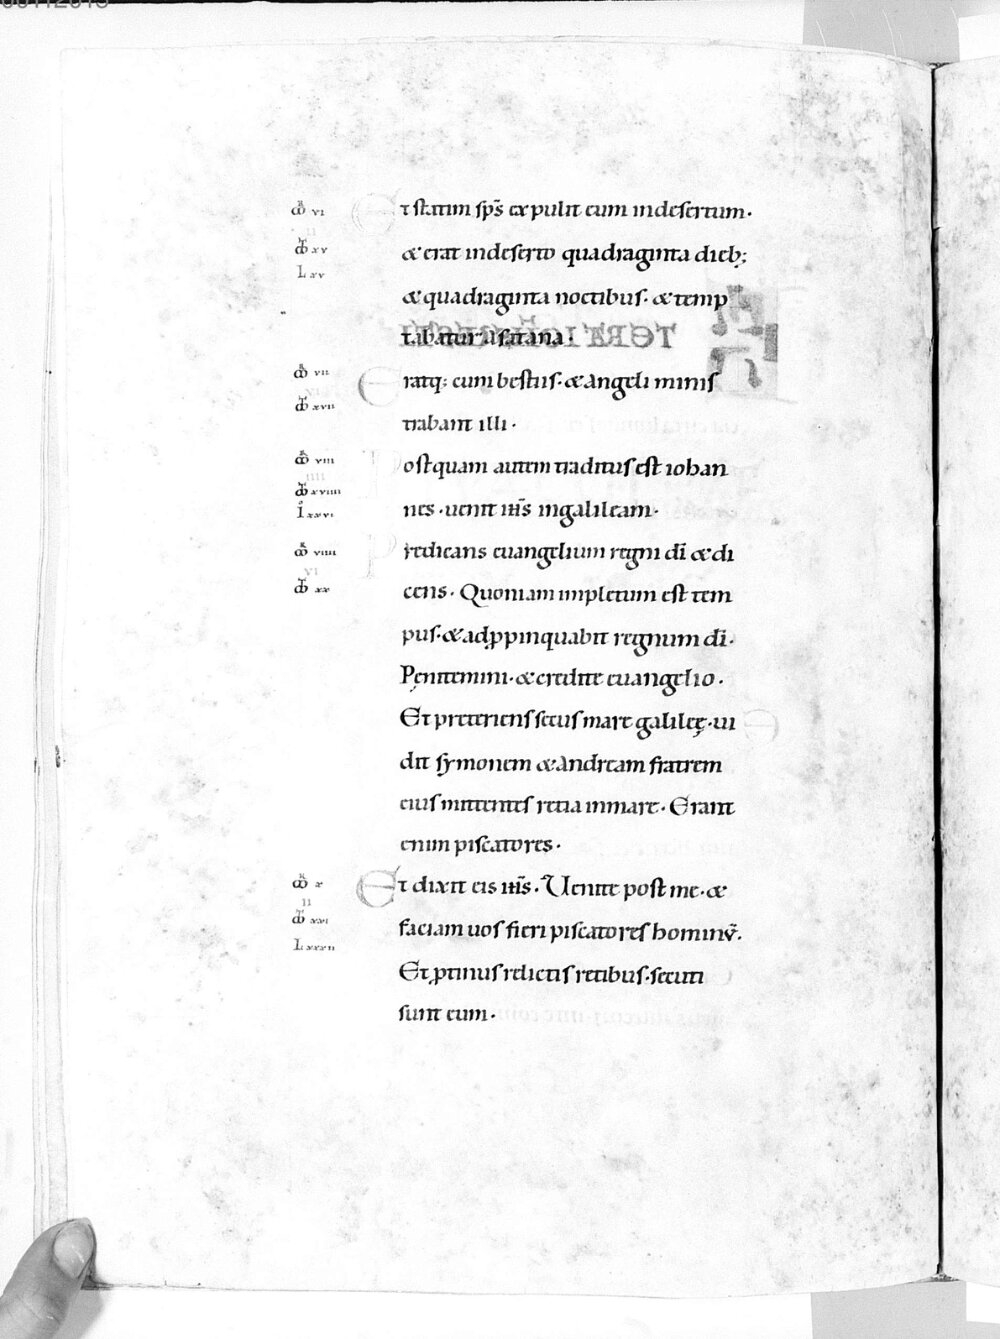 Et statim sp̅s expulit eum indesertum·
& erat indeserto quadraginta dieb;
& quadraginta noctibus· & temp
tabatur asatana·
Eratq; cum bestiis· & angeli minis
trabant illi·
Postquam autem traditus est iohan
nes· uenit ih̅s ingalileam·
Predicans euangelium regni di̅ & di
cens· Quoniam impletum est tem
pus· & adꝓpinquabit regnum di̅·
Penitemini· & credite euangelio·
Et preteriens secus mare galileę· ui
dit symonem & andream fratrem
eius mittentes retia inmare· Erant
enim piscatores·
Et dixit eis ih̅s· Uenite post me· &
faciam uos fieri piscatores hominu̅·
Et ꝓtinus relictis retibus· secuti
sunt eum·
vi
xv
L xv
vii
xvii
viii
xviiii
I xxvi
viiii
vi
xx
x
ii
xxi
L xxxii